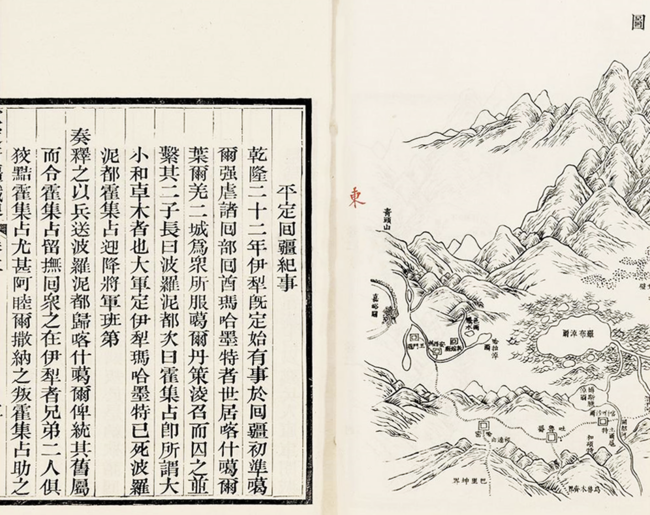 圖
東
嘉峪關
羅布淖爾
吐魯番
巴里坤界
平定囘疆紀事
乾隆二十二年伊犂旣定始有事於囘疆初準噶
爾强虐諸囘部囘酋瑪哈墨特者世居喀什噶爾
葉爾羌二城爲衆所服噶爾丹策淩召而囚之並
縶其二子長曰波羅泥都次曰霍集占卽所謂大
小和卓木者也大軍定伊犂瑪哈墨特已死波羅
泥都霍集占迎降將軍班第
奏釋之以兵送波羅泥都歸喀什噶爾俾統其舊屬
而令霍集占留撫囘衆之在伊犂者兄弟二人俱
狡黠霍集占尤甚阿睦爾撒納之叛霍集占助之